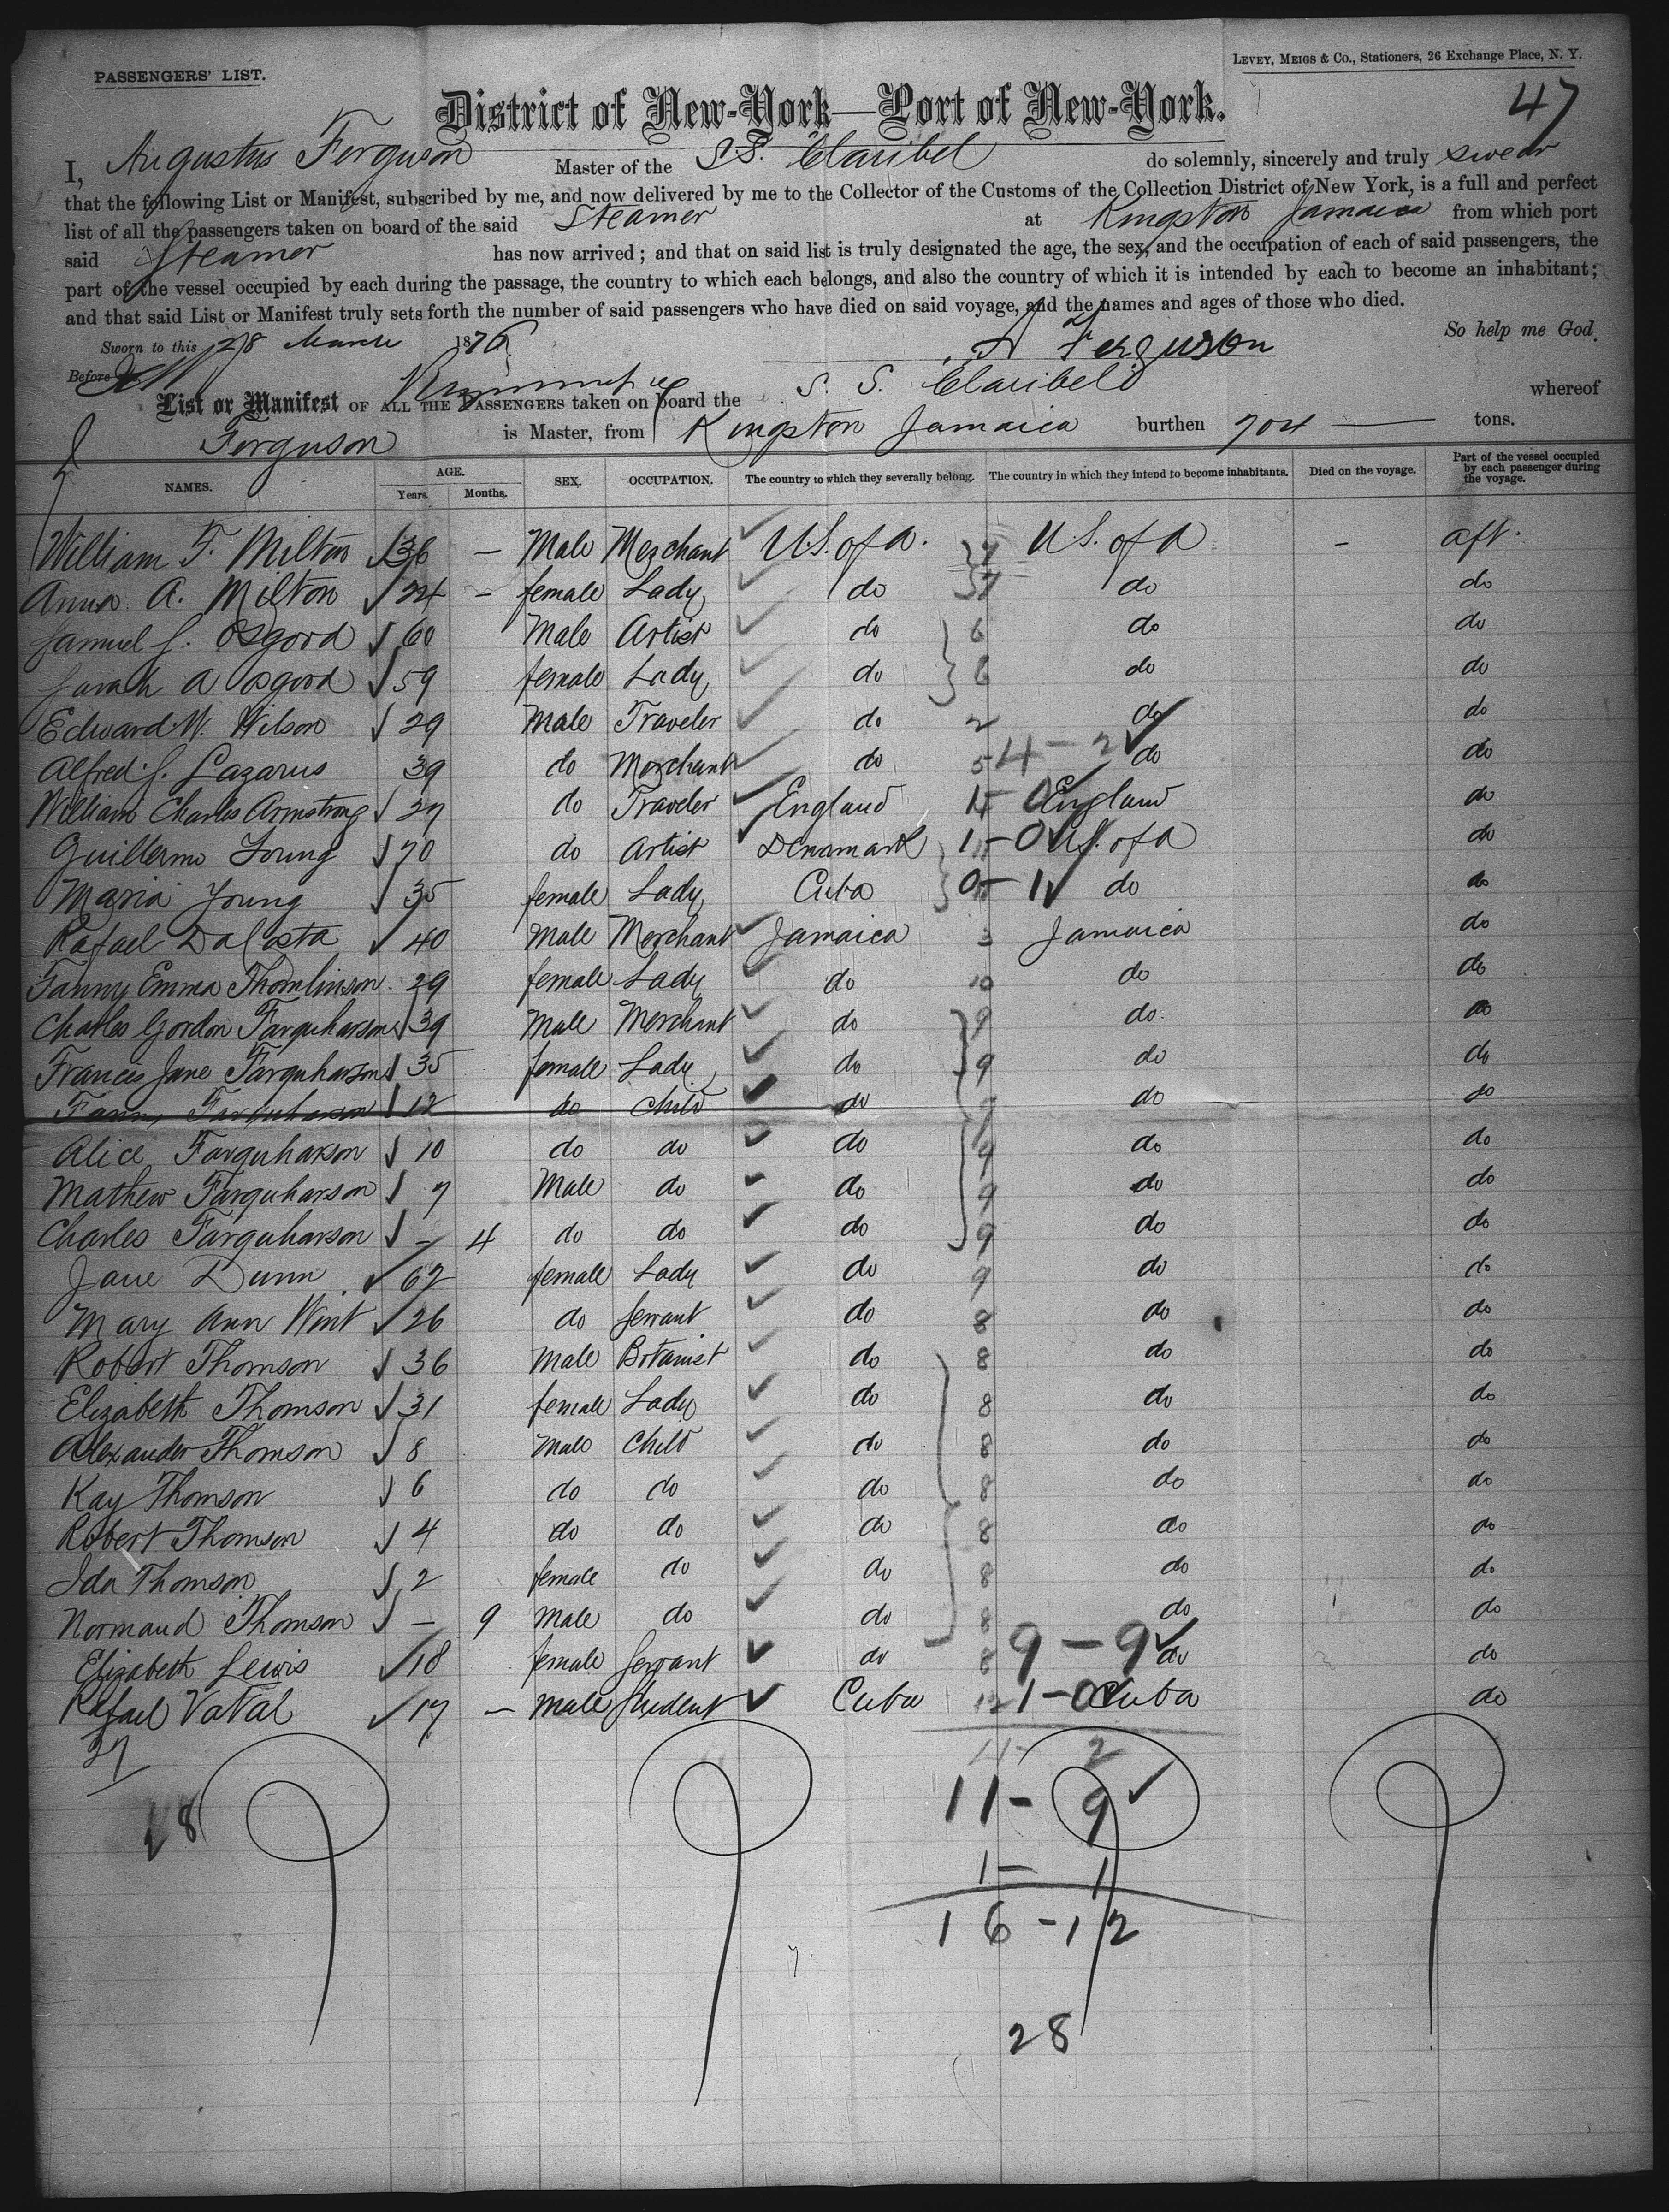 PASSENGERS' LIST.
LEVEY, MEIGS & Co., Stationers, 26 Exchange Place, N. Y.
47
District of New-York—Port of New-York.
I, Augustus Ferguson Master of the S.S. Claribel do solemnly, sincerely and truly swear
that the following List or Manifest, subscribed by me, and now delivered by me to the Collector of the Customs of the Collection District of New York, is a full and perfect
list of all the passengers taken on board of the said Steamer at Kingston Jamaica from which port
said Steamer has now arrived; and that on said list is truly designated the age, the sex, and the occupation of each of said passengers, the
part of the vessel occupied by each during the passage, the country to which each belongs, and also the country of which it is intended by each to become an inhabitant;
and that said List or Manifest truly sets forth the number of said passengers who have died on said voyage, and the names and ages of those who died.
So help me God.
Sworn to this 28 March 1876
A Ferguson
Before
List or Manifest OF ALL THE PASSENGERS taken on board the S. S. Claribel whereof
Ferguson is Master, from Kingston Jamaica burthen 704 tons.
NAMES. AGE. Years. Months. SEX. OCCUPATION. The country to which they severally belong. The country in which they intend to become inhabitants. Died on the voyage. Part of the vessel occupied by each passenger during the voyage.
William F. Milton 36 — Male Merchant U.S. of A. 7 U.S. of A — aft.
Anna A. Milton 24 — female Lady do 7 do do
Samuel S. Osgood 60 Male Artist do 6 do do
Sarah A Osgood 59 female Lady do 6 do do
Edward W. Wilson 29 Male Traveler do 2 do do
Alfred J. Lazarus 39 do Merchant do 5 4-2 do do
William Charles Armstrong 27 do Traveler England 1-0 England do
Guillermo Young 70 do Artist Denamark 1-0 U.S. of A do
Maria Young 35 female Lady Cuba 0-1 do do
Rafael DaCosta 40 Male Merchant Jamaica 3 Jamaica do
Fanny Emma Thomlinson 29 female Lady do 10 do do
Charles Gordon Farquharson 39 Male Merchant do 9 do do
Frances Jane Farquharson 35 female Lady do 9 do do
Fanny Farquharson 12 do Child do 9 do do
Alice Farquharson 10 do do do 9 do do
Mathew Farquharson 7 Male do do 9 do do
Charles Farquharson — 4 do do do 9 do do
Jane Dunn 62 female Lady do 9 do do
Mary Ann Wint 26 do Servant do 8 do do
Robert Thomson 36 Male Botanist do 8 do do
Elizabeth Thomson 31 female Lady do 8 do do
Alexander Thomson 8 Male Child do 8 do do
Kay Thomson 6 do do do 8 do do
Robert Thomson 4 do do do 8 do do
Ida Thomson 2 female do do 8 do do
Normand Thomson — 9 Male do do 8 do do
Elizabeth Lewis 18 female Servant do 8 9-9 do do
Rafael Vatal 17 — Male Student Cuba 12 1-0 Cuba do
27
11- 2
28
11- 9
1- 1
16-12
28